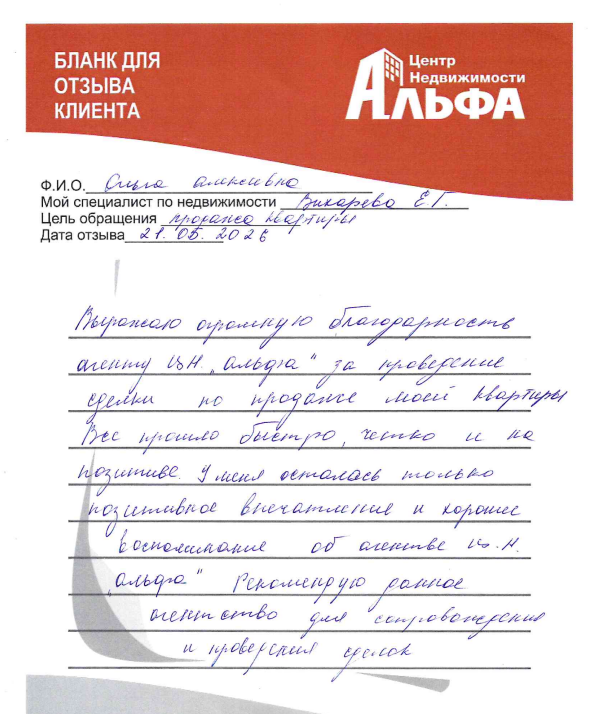 БЛАНК ДЛЯ
ОТЗЫВА
КЛИЕНТА
Центр
Недвижимости
АЛЬФА
Ф.И.О. Ольга алексивна
Мой специалист по недвижимости Викарева Е.Г.
Цель обращения продажа квартиры
Дата отзыва 21.05.2026
Выражаю огромную благодарность
агенту ц.Н. „альфа“ за проведение
сделки по продаже моей квартиры
Все прошло быстро, четко и на
позитиве. У меня осталась только
позитивное впечатление и хорошее
воспоминание об агенстве ц.Н.
„альфа“ Рекомендую данное
агентство для сопровождения
и проведения сделок